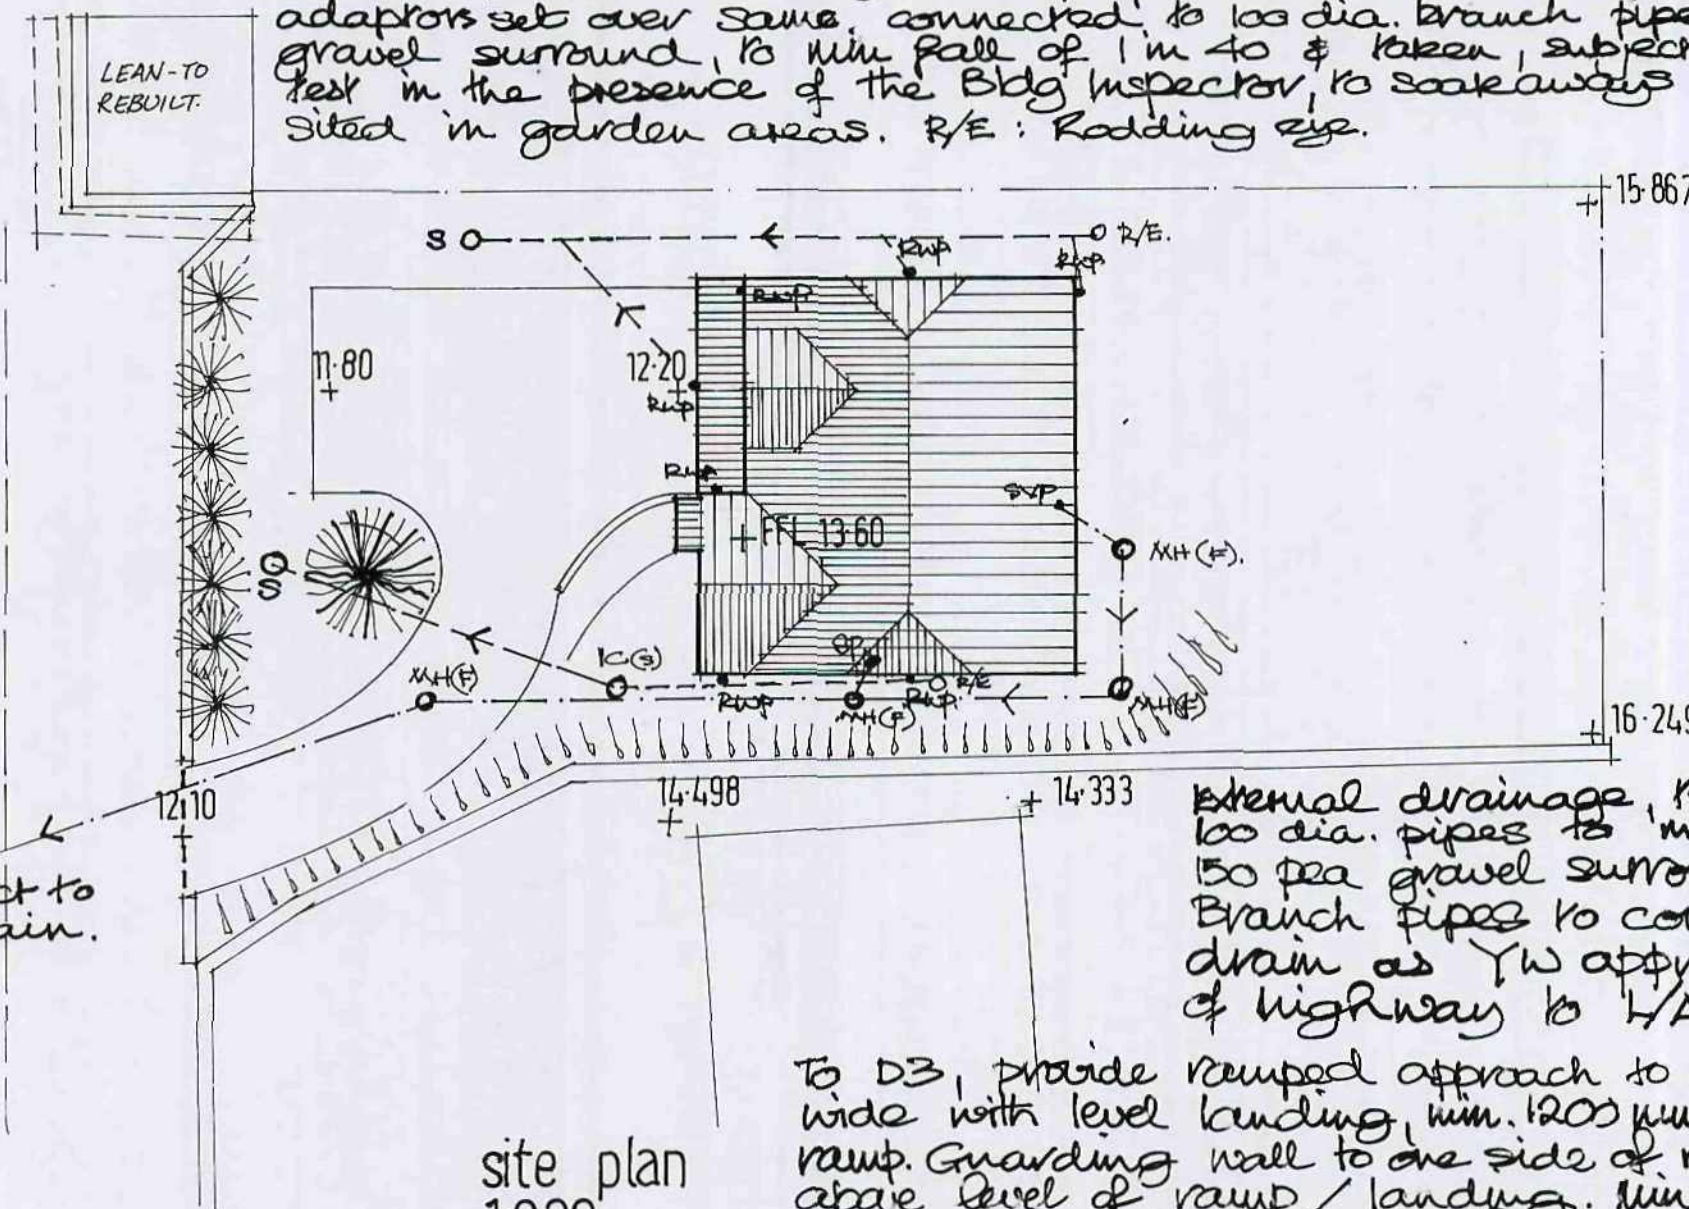 adaptors set over same, connected to 100 dia. branch pipe
gravel surround, to min fall of 1 in 40 & taken, subject
test in the presence of the Bldg Inspector, to soakaways
sited in garden areas. R/E : Rodding eye.
LEAN-TO
REBUILT.
15·867
S
R/E.
RWP
RWP
RWP
11·80
12·20
RWP
RWP
SVP
FFL 13·60
MH(F).
S
IC(S)
MH(F)
R/E
RWP
MH(F)
RWP.
MH(F)
16·249
12·10
14·498
14·333
External drainage,
100 dia. pipes to
150 pea gravel
Branch pipes to
drain as YW
of highway to
ct to
ain.
To D3, provide ramped approach to
wide with level landing, min. 1200
ramp. Guarding wall to one side of
above level of ramp / landing. Min
site plan